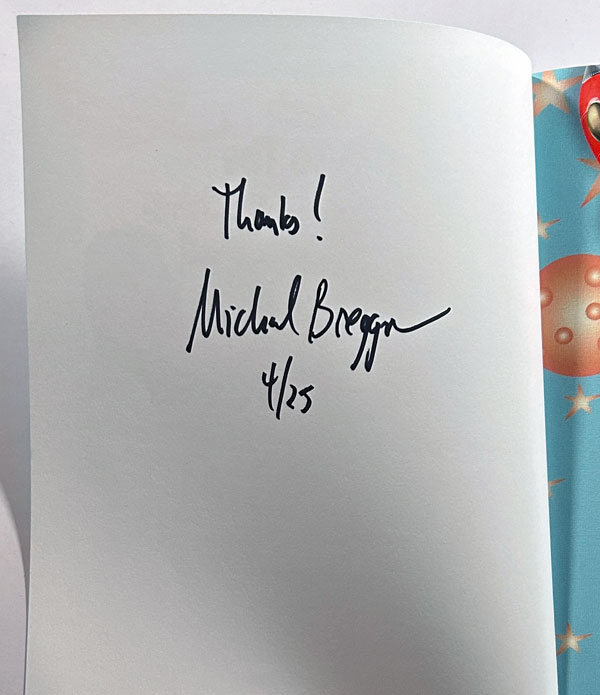 Thanks!
Michael Breggar
4/25